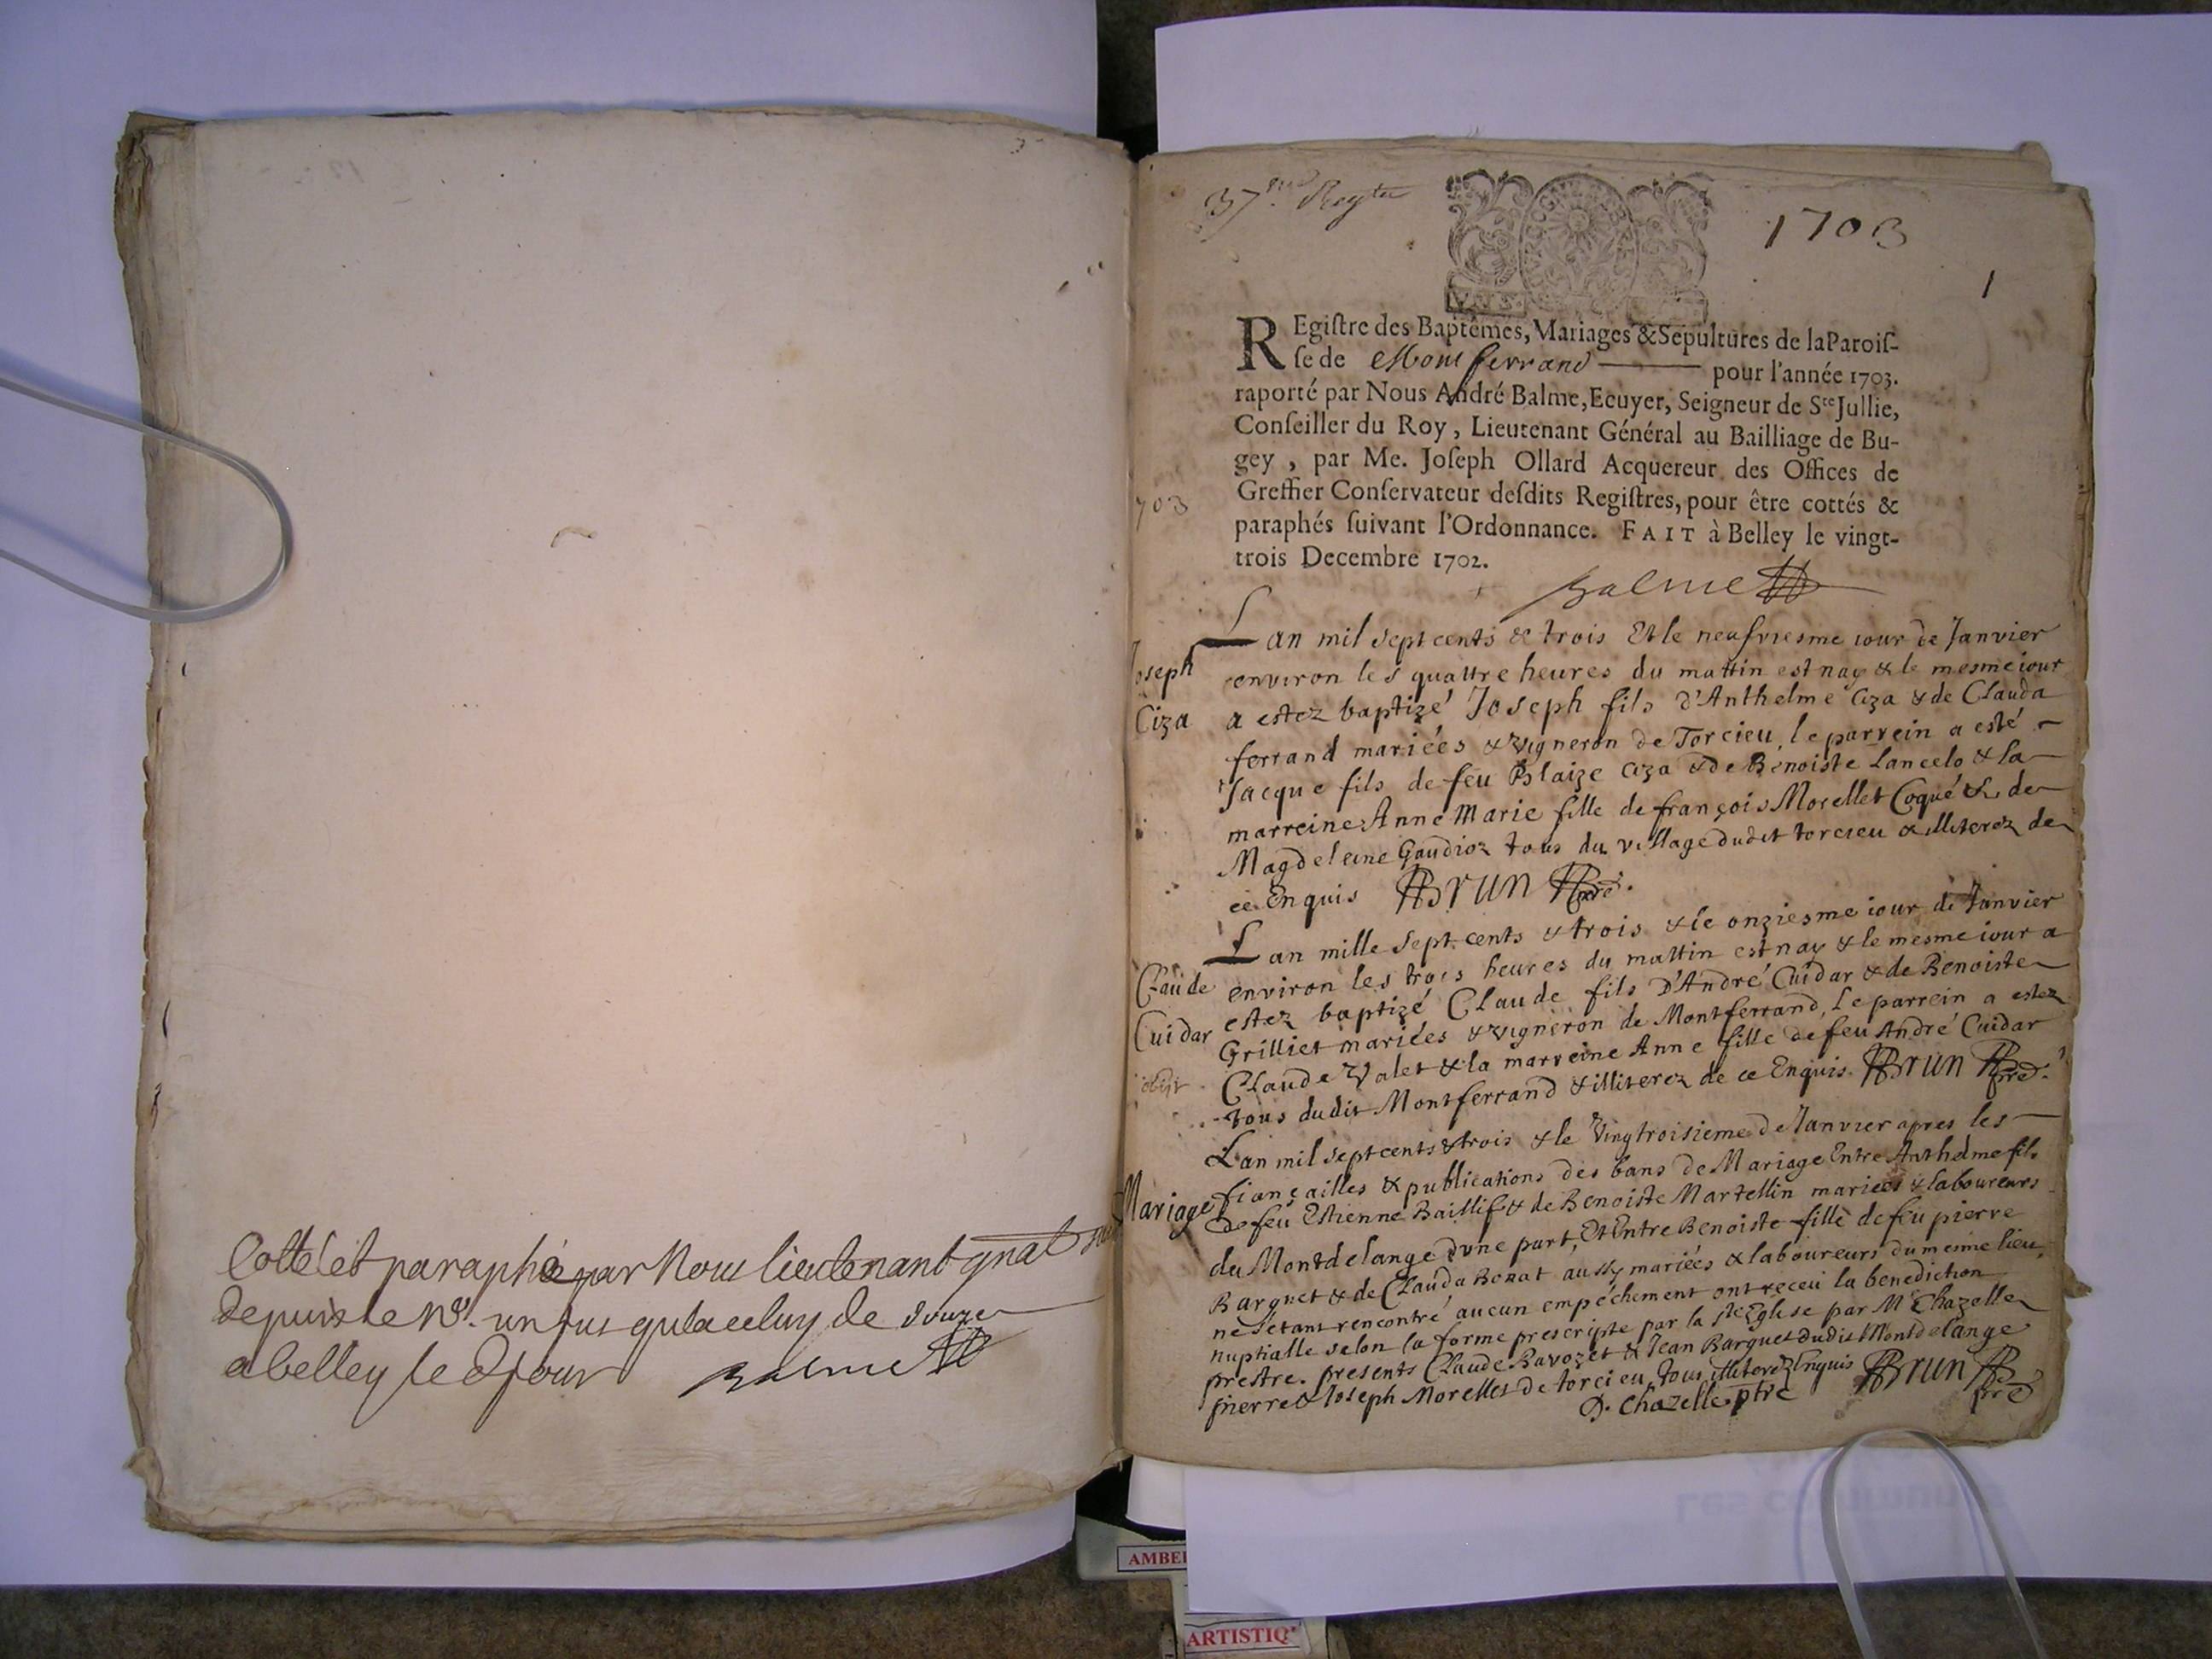 Cotté et paraphé par Nous lieutenant gnãl
depuis le No. un jusqu'a celuy de douze
a belley le d jour Balme
37me Regtre
1703
1
REgistre des Baptêmes, Mariages & Sepultures de la Parois-
se de Montferrand pour l'année 1703.
raporté par Nous André Balme, Ecuyer, Seigneur de Ste Jullie,
Conseiller du Roy, Lieutenant Général au Bailliage de Bu-
gey, par Me. Joseph Ollard Acquereur des Offices de
Greffier Conservateur desdits Registres, pour être cottés &
paraphés suivant l'Ordonnance. FAIT à Belley le vingt-
trois Decembre 1702.
Balme
703
Joseph
Ciza
Lan mil sept cents & trois Et le neufviesme iour de Janvier
environ les quattre heures du mattin est nay & le mesme iour
a estez baptizé Joseph fils d'Anthelme Ciza & de Clauda
ferrand mariées & vigneron de Torcieu, le parrein a esté
Jacque fils de feu Blaize Ciza & de Benoiste Lancelo & la
marreine Anne Marie fille de françois Morellet Coqué & de
Magdeleine Gaudioz tous du village dudit torcieu & illiterez de
ce Enquis Brun
Claude
Cuidar
obijt
Lan mille Sept cents & trois & le onziesme iour de Janvier
environ les trois heures du mattin est nay & le mesme iour a
estez baptizé Claude fils D'André Cuidar & de Benoiste
Grilliet mariées & vigneron de Montferrand, Le parrein a estez
Claude Valet & la marreine Anne fille de feu André Cuidar
tous dudit Montferrand & illiterez de ce Enquis. Brun
Mariage
Lan mil sept cents & trois & le Vingtroisieme de Janvier apres les
fiançailles & publications des bans de Mariage Entre Anthelme fils
de feu Estienne Baillif & de Benoiste Martellin mariees & laboureurs
du Montdelange dune part, Et Entre Benoiste fille de feu pierre
Barquet & de Clauda Bozat aussy mariées & laboureurs du mesme lieu,
ne s'étant rencontré aucun empéchement ont receu la benediction
nuptialle selon la forme prescripte par la ste Eglise par Mr Chazelle
prestre. presents Claude Ravozet & Jean Barquet dudit Montdelange
pierre & Joseph Morellet de torcieu, tous illiterez Enquis Brun
D. Chazelle ptre
AMBE
ARTISTIQ'